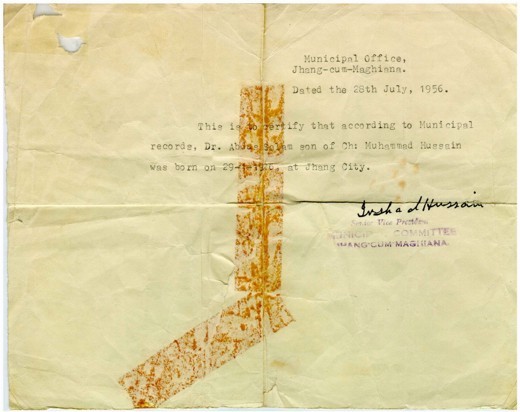 Municipal Office,
Jhang-cum-Maghiana.
Dated the 28th July, 1956.
This is to certify that according to Municipal
records, Dr. Abdus Salam son of Ch: Muhammad Hussein
was born on at Jhang City.
Irshad Hussain
Senior Vice President
MUNICIPAL COMMITTEE
JHANG-CUM-MAGHIANA.